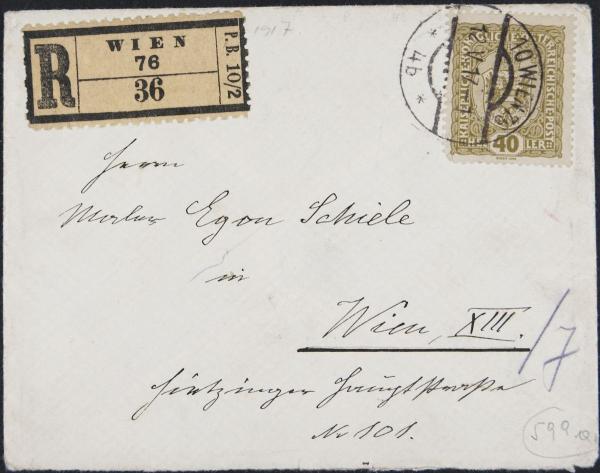 R
WIEN
76
36
P.B. 10/2
1917
* 4b *
10 WIEN 76
KAISERLICHE KÖNIGLICHE ÖSTERREICHISCHE POST
40
Herrn
Maler Egon Schiele
in
Wien, XIII.
Hietzinger Hauptstraße
Nr 101.
/7
599